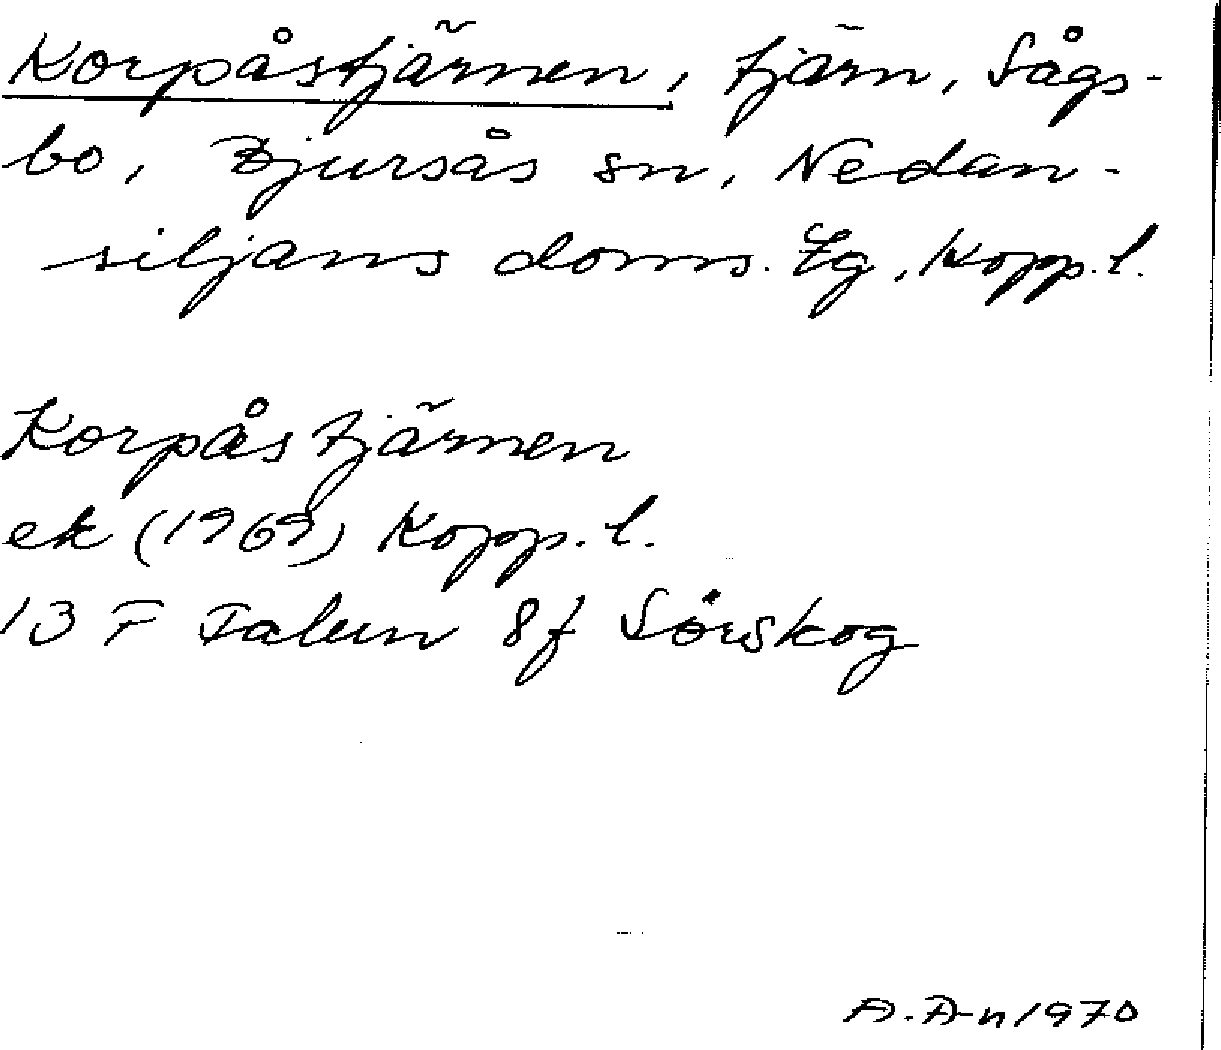 Korpåstjärnen, tjärn, Sågs-
bo, Bjursås sn, Nedan-
siljans doms. Lg, Kopp. l.
Korpåstjärnen
ek (1969) Kopp. l.
13 F Falun 8f Sörskog
A. A-n 1970